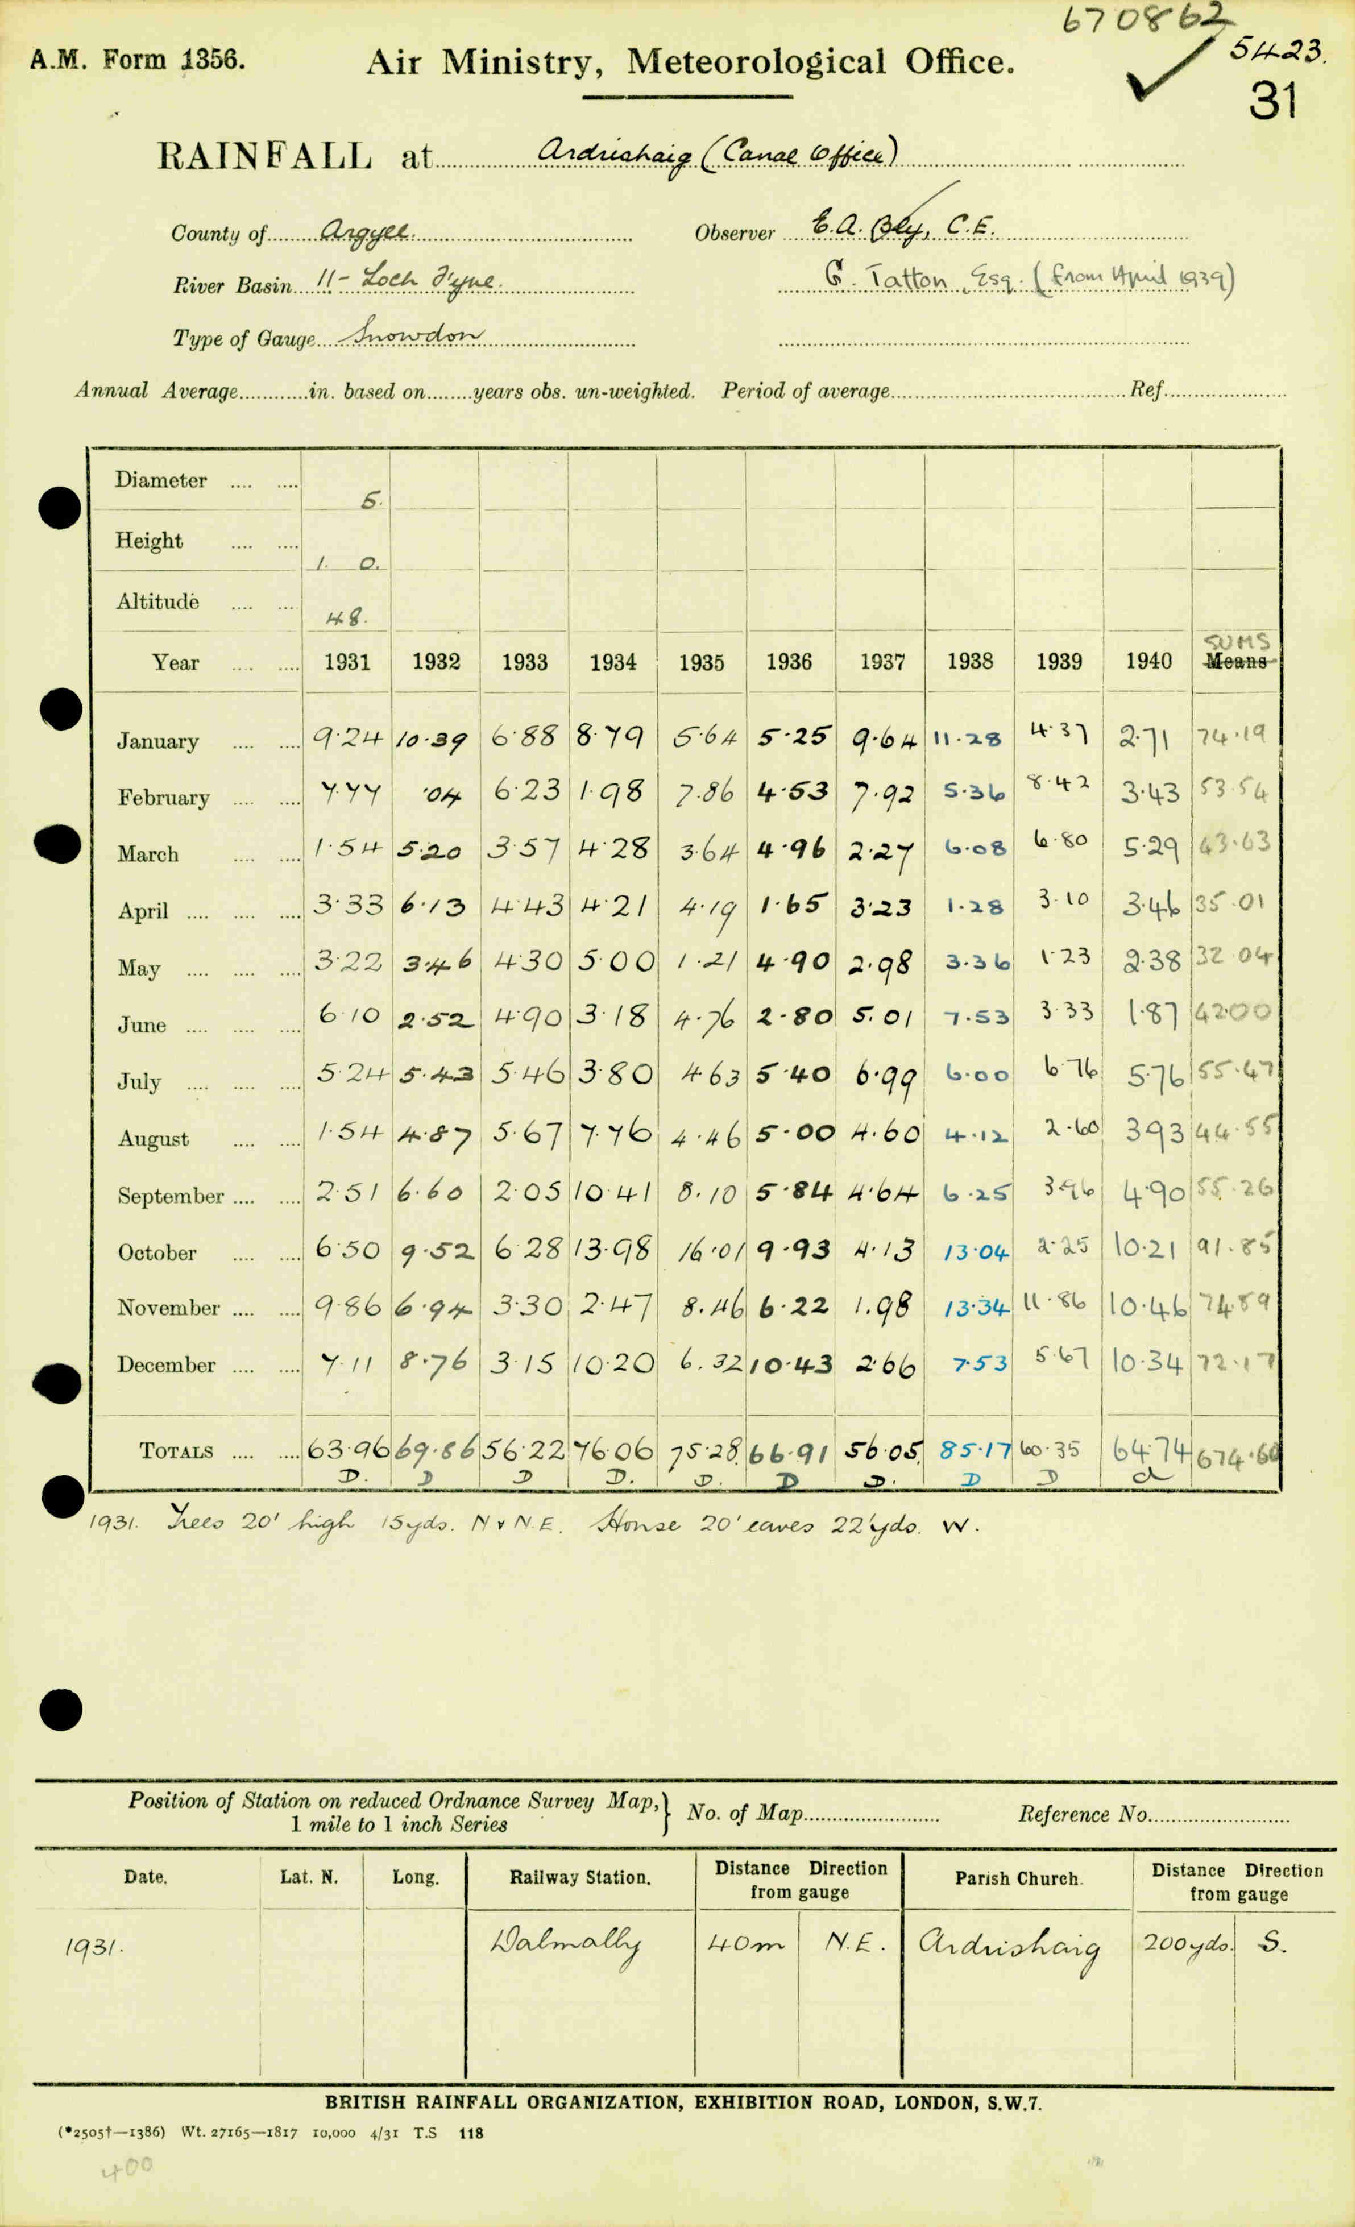 670862
A.M. Form 1356. Air Ministry, Meteorological Office. 5423.
31
RAINFALL at Ardrishaig (Canal Office)
County of Argyll. Observer E.A. Bly, C.E.
River Basin 11- Loch Fyne. G. Tatton, Esq. (from April 1939)
Type of Gauge Snowdon
Annual Average in. based on years obs. un-weighted. Period of average Ref.
Diameter 5.
Height 1. 0.
Altitude 48.
SUMS
Year 1931 1932 1933 1934 1935 1936 1937 1938 1939 1940 Means
January 9.24 10.39 6.88 8.79 5.64 5.25 9.64 11.28 4.37 2.71 74.19
February 7.77 .04 6.23 1.98 7.86 4.53 7.92 5.36 8.42 3.43 53.54
March 1.54 5.20 3.57 4.28 3.64 4.96 2.27 6.08 6.80 5.29 43.63
April 3.33 6.13 4.43 4.21 4.19 1.65 3.23 1.28 3.10 3.46 35.01
May 3.22 3.46 4.30 5.00 1.21 4.90 2.98 3.36 1.23 2.38 32.04
June 6.10 2.52 4.90 3.18 4.76 2.80 5.01 7.53 3.33 1.87 42.00
July 5.24 5.43 5.46 3.80 4.63 5.40 6.99 6.00 6.76 5.76 55.47
August 1.54 4.87 5.67 7.76 4.46 5.00 4.60 4.12 2.60 3.93 44.55
September 2.51 6.60 2.05 10.41 8.10 5.84 4.64 6.25 3.96 4.90 55.26
October 6.50 9.52 6.28 13.98 16.01 9.93 4.13 13.04 2.25 10.21 91.85
November 9.86 6.94 3.30 2.47 8.46 6.22 1.98 13.34 11.86 10.46 74.89
December 7.11 8.76 3.15 10.20 6.32 10.43 2.66 7.53 5.67 10.34 72.17
TOTALS 63.96 69.86 56.22 76.06 75.28 66.91 56.05 85.17 60.35 64.74 674.60
D. D D D. D. D D. D D d
1931. Trees 20' high 15yds. N & N.E. House 20' eaves 22 yds. W.
Position of Station on reduced Ordnance Survey Map, No. of Map Reference No.
1 mile to 1 inch Series
Date. Lat. N. Long. Railway Station. Distance Direction from gauge Parish Church. Distance Direction from gauge
1931. Dalmally 40m N.E. Ardrishaig 200yds. S.
BRITISH RAINFALL ORGANIZATION, EXHIBITION ROAD, LONDON, S.W.7.
(*2505†—1386) Wt. 27165—1817 10,000 4/31 T.S 118
400